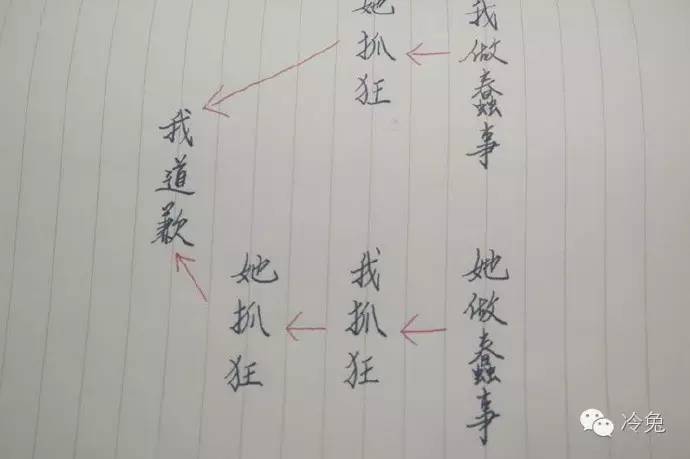 我做蠢事
她抓狂
我道歉
她做蠢事
我抓狂
她抓狂
冷兔